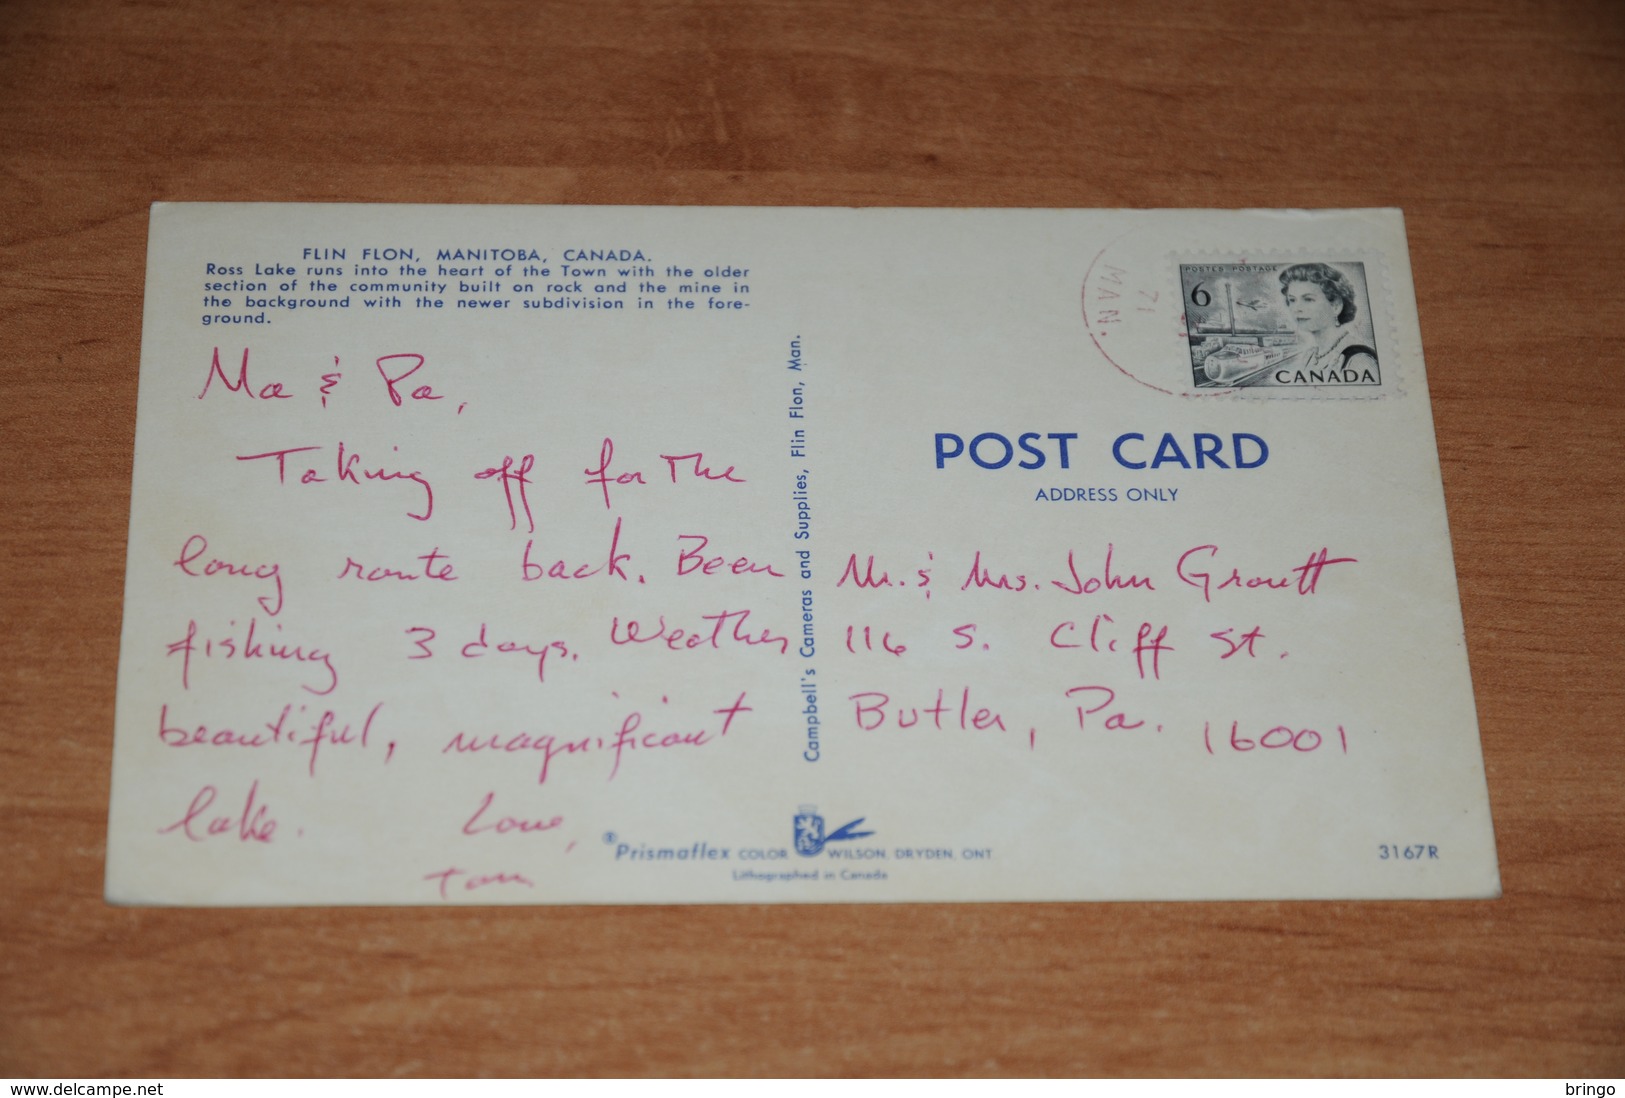 FLIN FLON, MANITOBA, CANADA.
Ross Lake runs into the heart of the Town with the older
section of the community built on rock and the mine in
the background with the newer subdivision in the fore-
ground.
Ma & Pa,
Taking off for the
long route back. Been
fishing 3 days. Weather
beautiful, magnificant
lake. Love,
Tom
Campbell's Cameras and Supplies, Flin Flon, Man.
MAN.
71
POSTES POSTAGE
6
CANADA
POST CARD
ADDRESS ONLY
Mr. & Mrs. John Groutt
116 S. Cliff St.
Butler, Pa. 16001
®Prismaflex COLOR WILSON, DRYDEN, ONT
Lithographed in Canada
3167R
www.delcampe.net
bringo